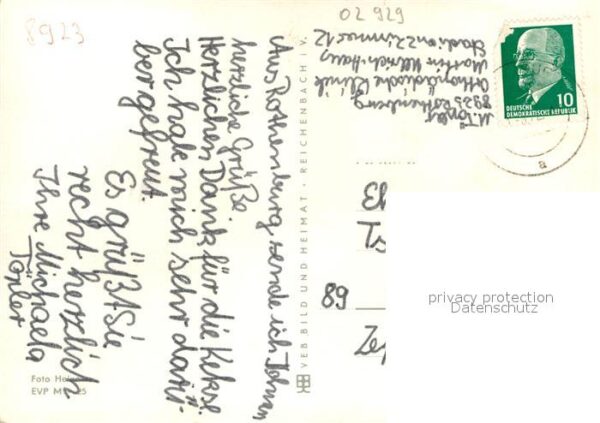 8923
02 929
Aus Rothenburg, sende ich Ihnen
herzliche Grüße.
Herzlichen Dank für die Kekse.
Ich habe mich sehr darü-
ber gefreut.
Es grüßt Sie
recht herzlich
Ihre Michaela
M.
8923 Rothenburg
Orthopädische Klinik
Martin-Ulbrich-Haus
Station 2 Zimmer 12
DEUTSCHE
DEMOKRATISCHE REPUBLIK
10
a
VEB BILD UND HEIMAT · REICHENBACH I V.
89
privacy protection
Datenschutz
Foto
EVP M